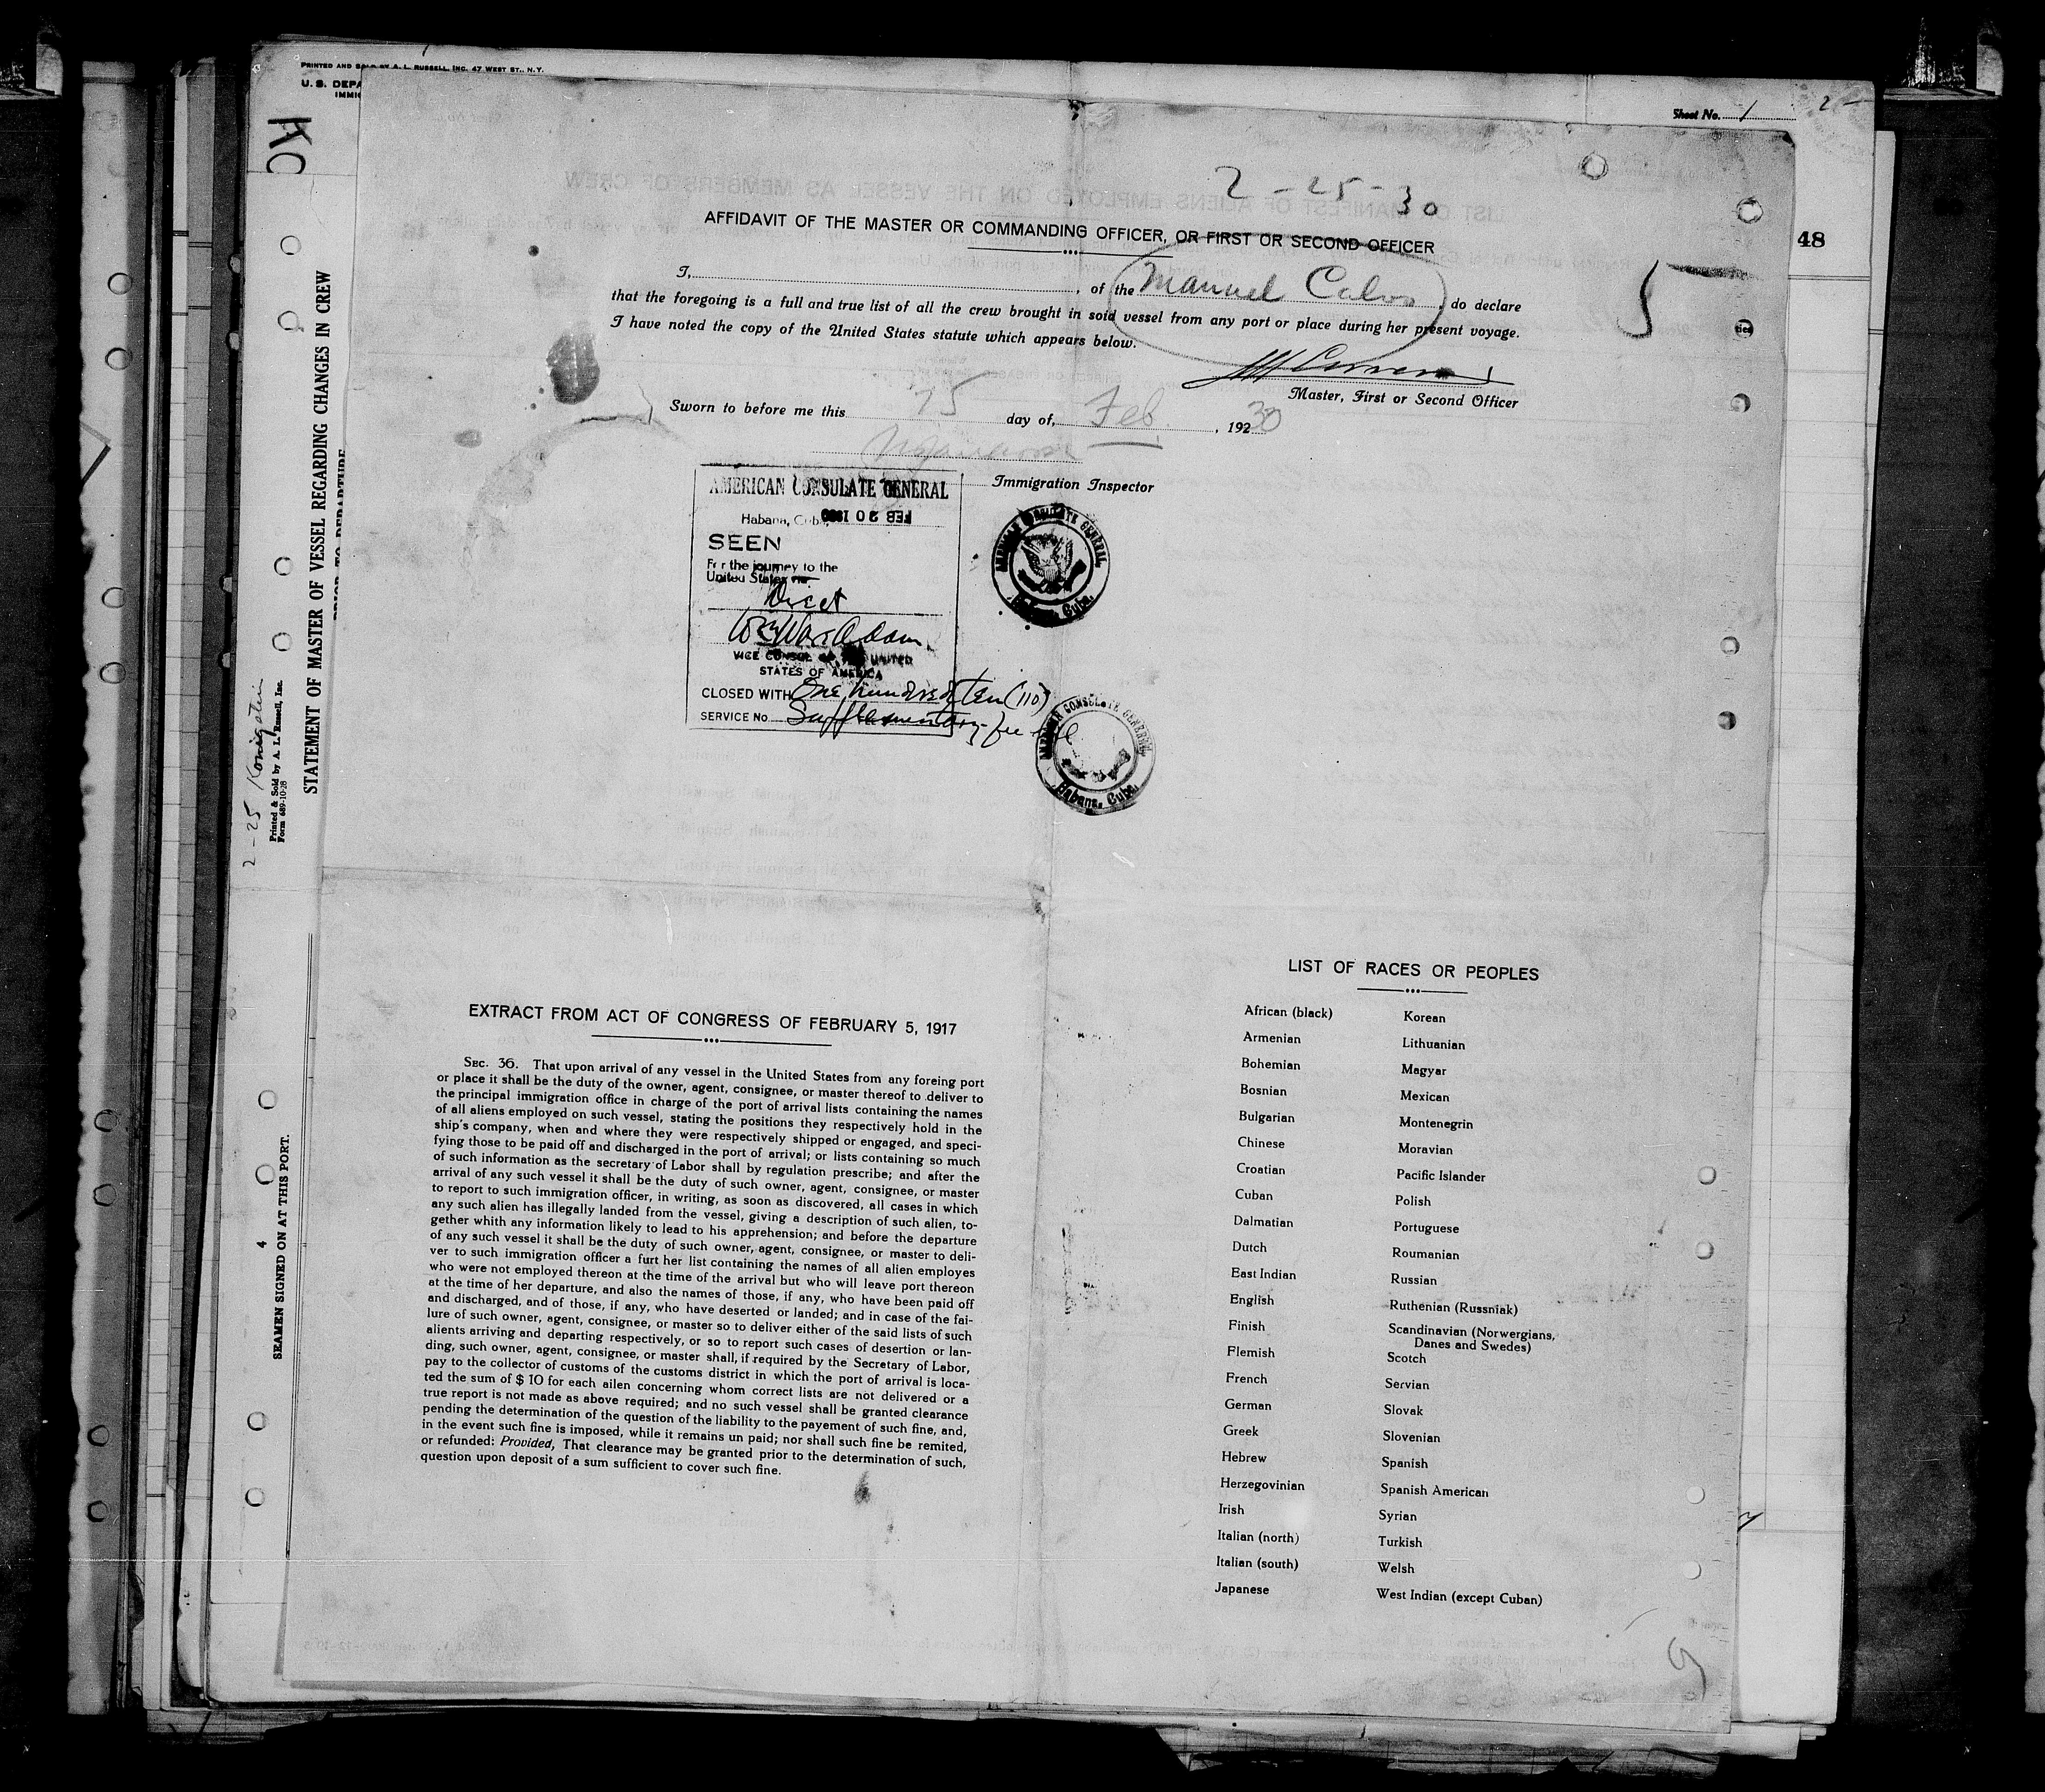 PRINTED AND SOLD BY A. L. RUSSELL, INC. 47 WEST ST., N.Y.
U. S. DEPA
IMMIG
Sheet No. 1
2 -
KC
48
2 - 25 - 30
AFFIDAVIT OF THE MASTER OR COMMANDING OFFICER, OR FIRST OR SECOND OFFICER
I, , of the Manuel Calvo do declare
that the foregoing is a full and true list of all the crew brought in soid vessel from any port or place during her present voyage.
I have noted the copy of the United States statute which appears below.
5
Master, First or Second Officer
Sworn to before me this 25 day of, Feb. , 19230
Immigration Inspector
AMERICAN CONSULATE GENERAL
Habana, Cuba, FEB 20 1930
SEEN
For the journey to the
United States via
Direct
VICE CONSUL OF THE UNITED
STATES OF AMERICA
CLOSED WITH One hundred ten (110)
SERVICE No. Supplementary-fee
AMERICAN CONSULATE GENERAL
Habana, Cuba.
AMERICAN CONSULATE GENERAL
Habana, Cuba.
STATEMENT OF MASTER OF VESSEL REGARDING CHANGES IN CREW
PRIOR TO DEPARTURE
2 - 25 Konigstein
Printed & Sold by A. L. Russell, Inc.
Form 689-10-28
SEAMEN SIGNED ON AT THIS PORT.
4
EXTRACT FROM ACT OF CONGRESS OF FEBRUARY 5, 1917
SEC. 36. That upon arrival of any vessel in the United States from any foreing port
or place it shall be the duty of the owner, agent, consignee, or master thereof to deliver to
the principal immigration office in charge of the port of arrival lists containing the names
of all aliens employed on such vessel, stating the positions they respectively hold in the
ship's company, when and where they were respectively shipped or engaged, and speci-
fying those to be paid off and discharged in the port of arrival; or lists containing so much
of such information as the secretary of Labor shall by regulation prescribe; and after the
arrival of any such vessel it shall be the duty of such owner, agent, consignee, or master
to report to such immigration officer, in writing, as soon as discovered, all cases in which
any such alien has illegally landed from the vessel, giving a description of such alien, to-
gether whith any information likely to lead to his apprehension; and before the departure
of any such vessel it shall be the duty of such owner, agent, consignee, or master to deli-
ver to such immigration officer a furt her list containing the names of all alien employes
who were not employed thereon at the time of the arrival but who will leave port thereon
at the time of her departure, and also the names of those, if any, who have been paid off
and discharged, and of those, if any, who have deserted or landed; and in case of the fai-
lure of such owner, agent, consignee, or master so to deliver either of the said lists of such
alients arriving and departing respectively, or so to report such cases of desertion or lan-
ding, such owner, agent, consignee, or master shall, if required by the Secretary of Labor,
pay to the collector of customs of the customs district in which the port of arrival is loca-
ted the sum of $ 10 for each ailen concerning whom correct lists are not delivered or a
true report is not made as above required; and no such vessel shall be granted clearance
pending the determination of the question of the liability to the payement of such fine, and,
in the event such fine is imposed, while it remains un paid; nor shall such fine be remited,
or refunded: Provided, That clearance may be granted prior to the determination of such,
question upon deposit of a sum sufficient to cover such fine.
LIST OF RACES OR PEOPLES
African (black)
Armenian
Bohemian
Bosnian
Bulgarian
Chinese
Croatian
Cuban
Dalmatian
Dutch
East Indian
English
Finish
Flemish
French
German
Greek
Hebrew
Herzegovinian
Irish
Italian (north)
Italian (south)
Japanese
Korean
Lithuanian
Magyar
Mexican
Montenegrin
Moravian
Pacific Islander
Polish
Portuguese
Roumanian
Russian
Ruthenian (Russniak)
Scandinavian (Norwergians,
Danes and Swedes)
Scotch
Servian
Slovak
Slovenian
Spanish
Spanish American
Syrian
Turkish
Welsh
West Indian (except Cuban)